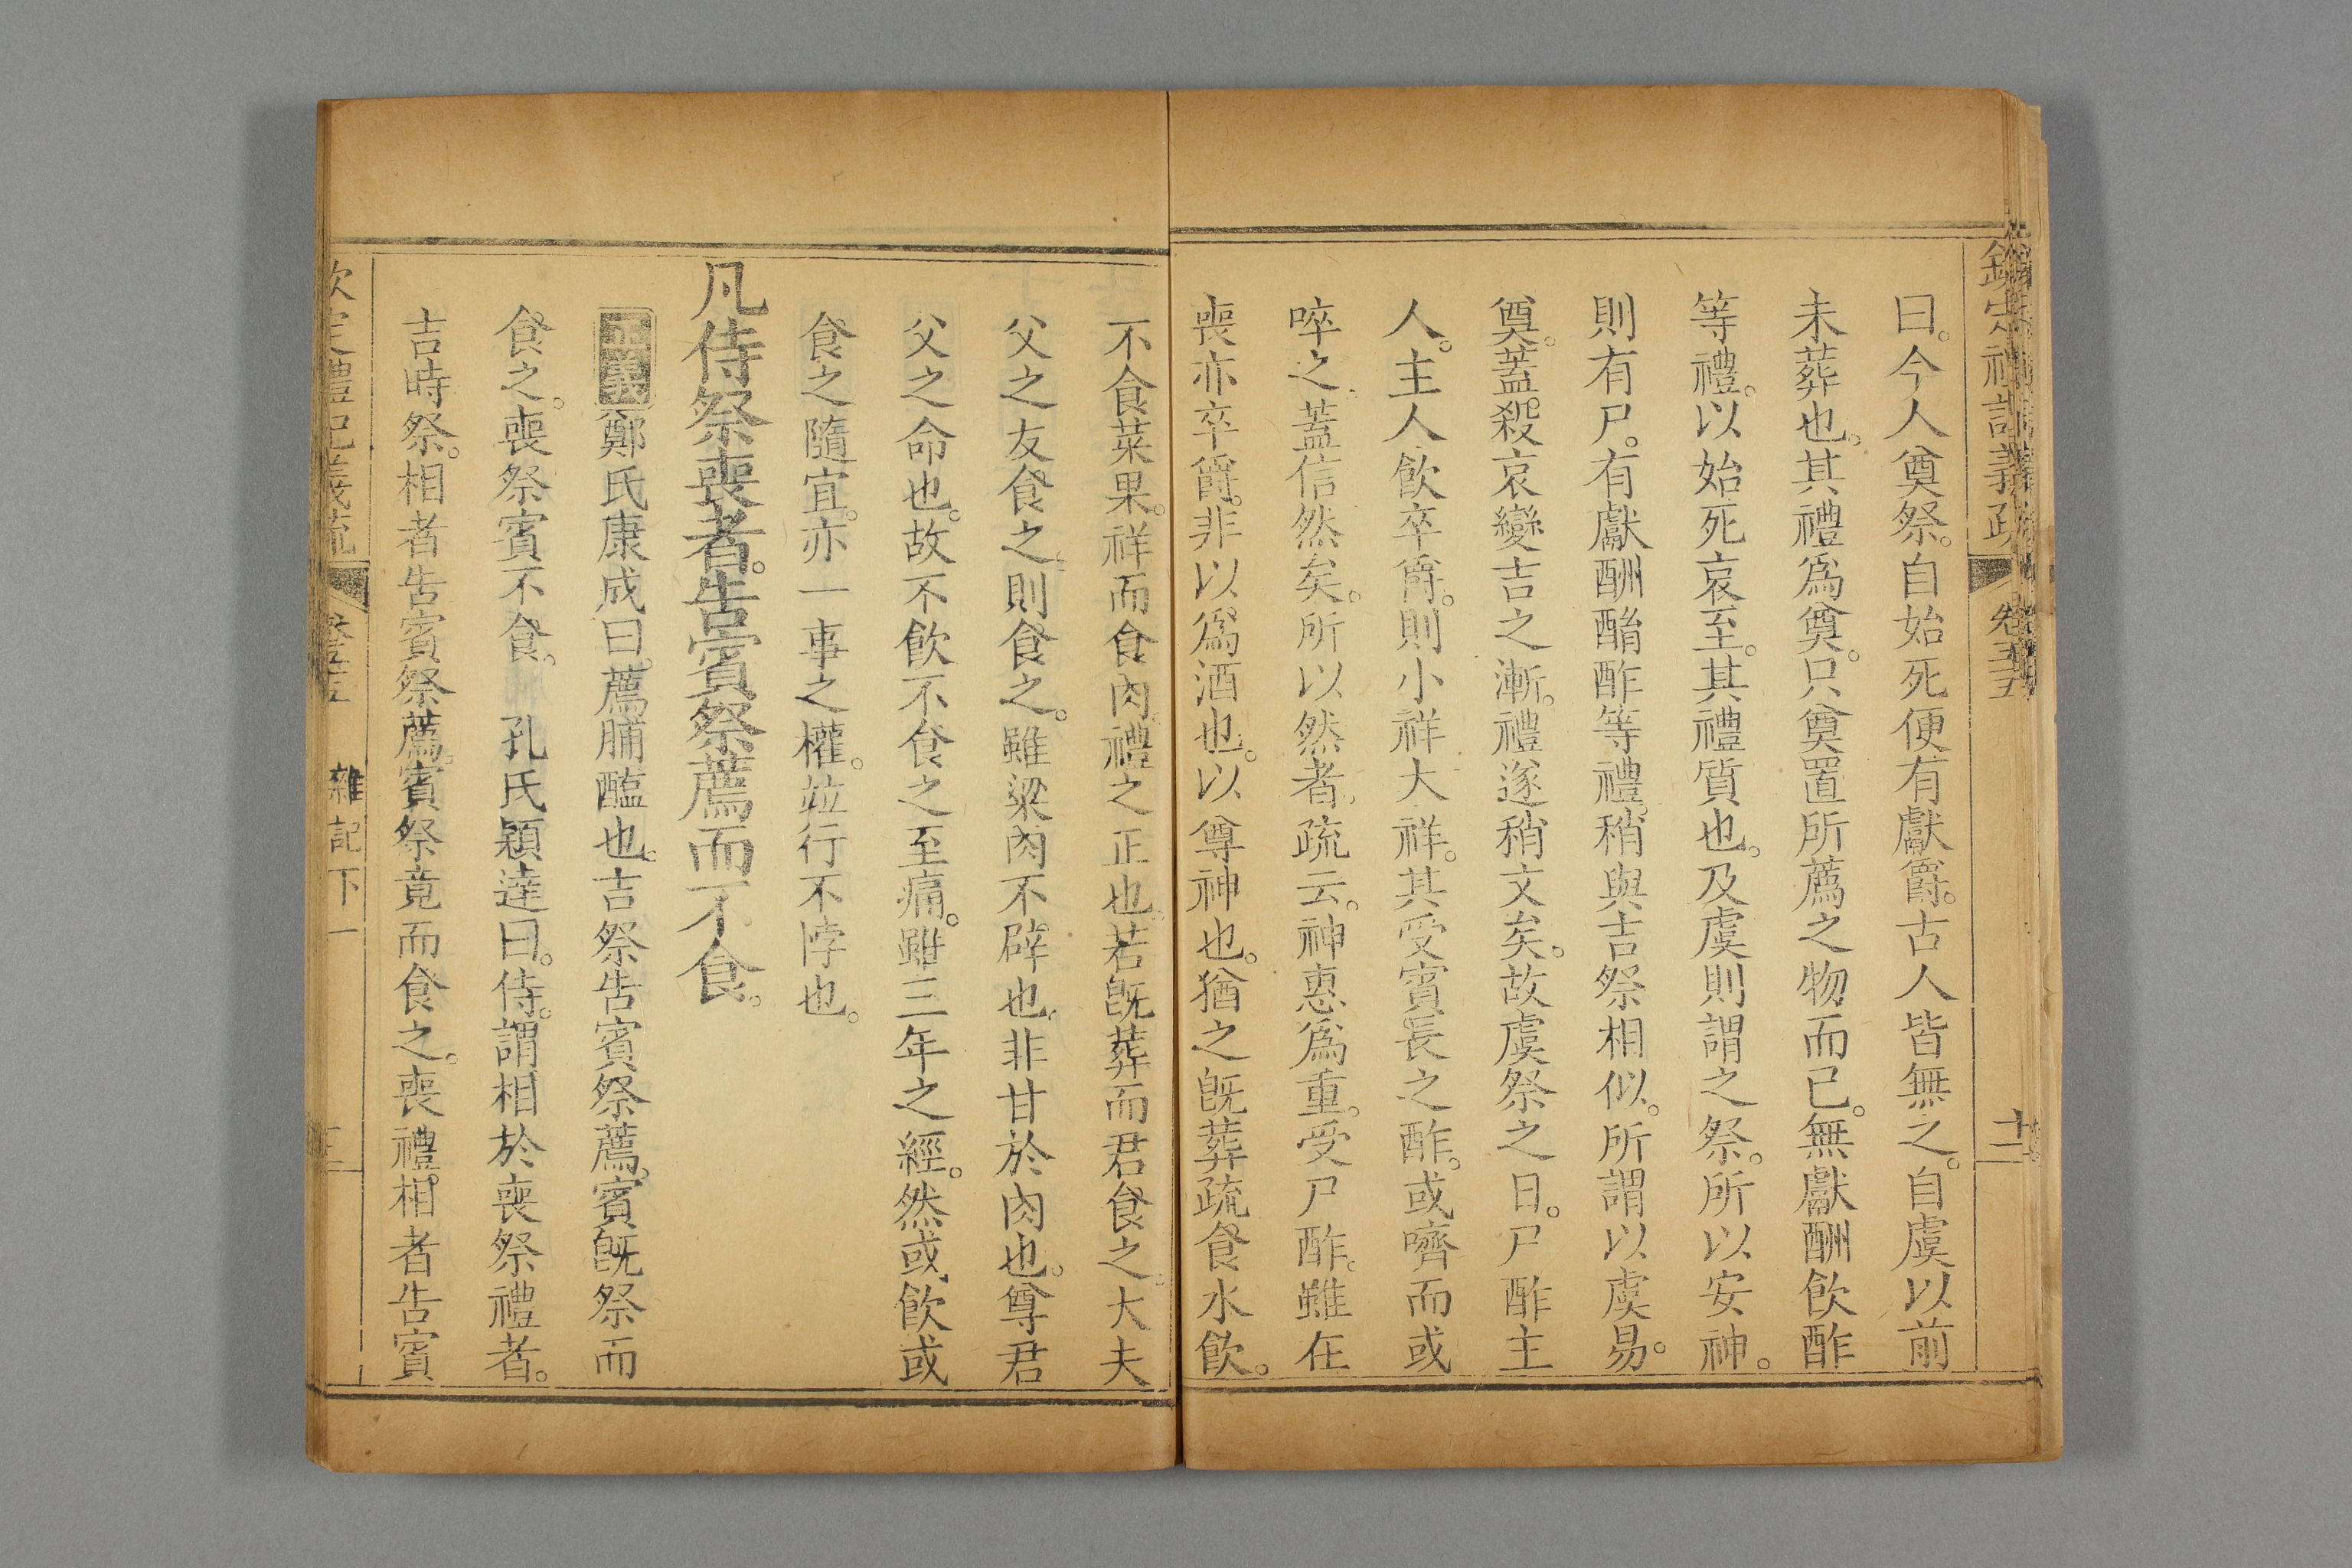 曰。今人奠祭。自始死便有獻爵。古人皆無之。自虞以前
未葬也。其禮爲奠。只奠置所薦之物而已。無獻酬飲酢
等禮。以始死哀至。其禮質也。及虞則謂之祭。所以安神。
則有尸。有獻酬酳酢等禮。稍與吉祭相似。所謂以虞易。
奠。蓋殺哀變吉之漸。禮遂稍文矣。故虞祭之日。尸酢主
人。主人飲卒爵。則小祥大祥。其受賓長之酢。或嚌而或
啐之。蓋信然矣。所以然者。疏云。神惠爲重。受尸酢。雖在
喪亦卒爵。非以爲酒也。以尊神也。猶之旣葬疏食水飲。
不食菜果。祥而食肉。禮之正也。若旣葬而君食之。大夫
父之友食之。則食之。雖粱肉不辟也。非甘於肉也。尊君
父之命也。故不飲不食之至痛。雖三年之經。然或飲或
食之隨宜。亦一事之權。並行不悖也。
凡侍祭喪者。告賓祭薦而不食。
正義鄭氏康成曰。薦脯醢也。吉祭告賓祭薦。賓旣祭而
食之。喪祭賓不食。 孔氏穎達曰。侍。謂相於喪祭禮者。
吉時祭。相者告賓祭薦。賓祭竟而食之。喪禮。相者告賓
欽定禮記義疏 雜記下一